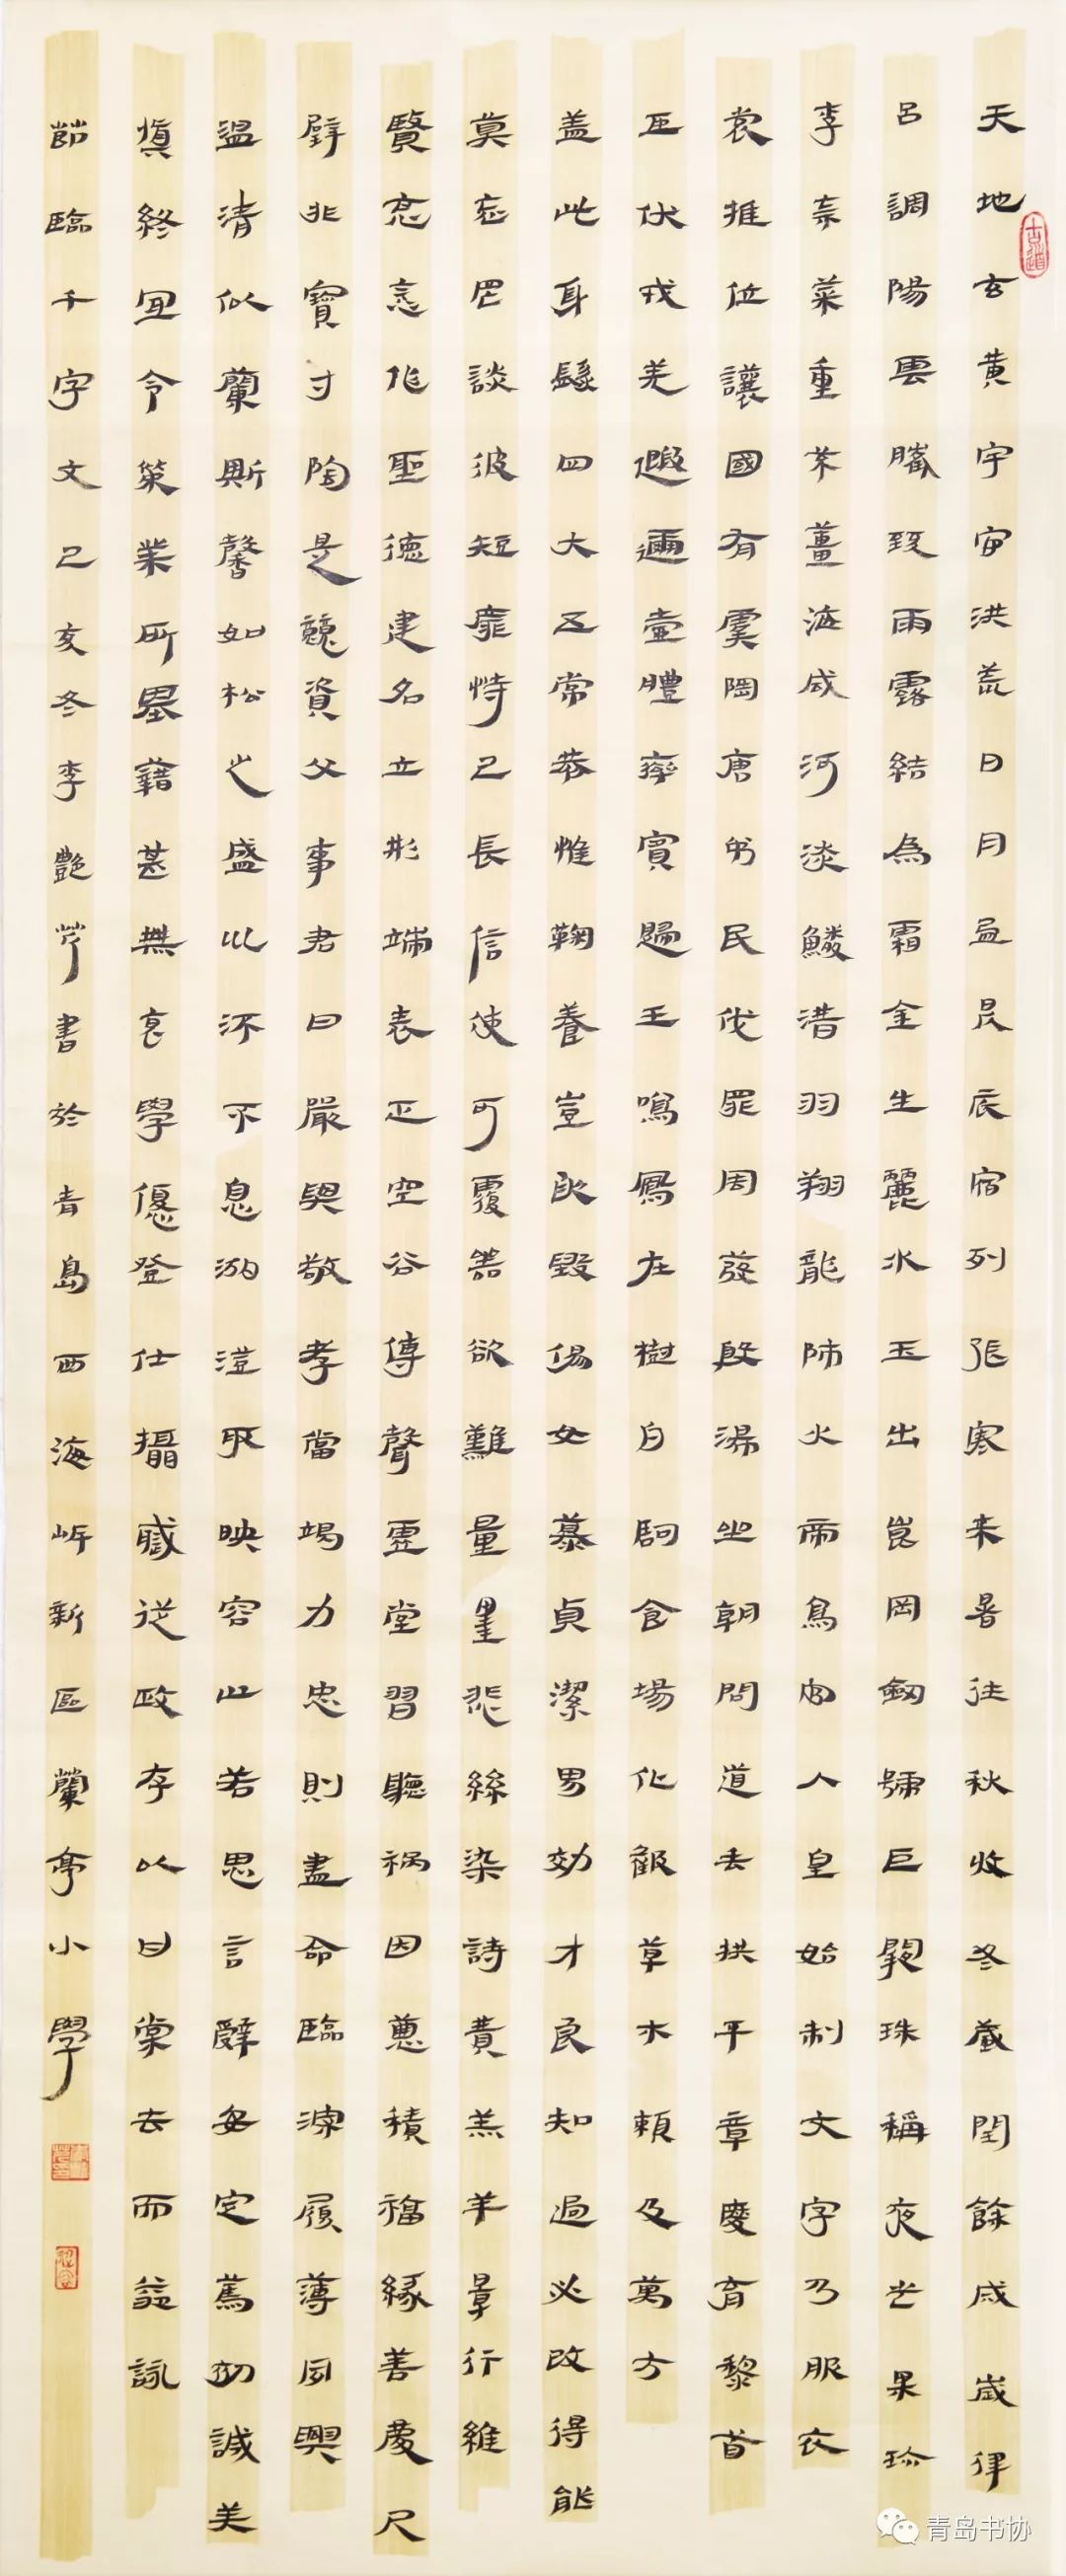 天地玄黄宇宙洪荒日月盈昃辰宿列張寒来暑往秋收冬蔵閏餘成歲律
吕調陽雲騰致雨露結為霜金生麗水玉出崑岡劔號巨闕珠稱夜光果珍
李柰菜重芥薑海咸河淡鱗潜羽翔龍師火帝鳥官人皇始制文字乃服衣
裳推位讓國有虞陶唐弔民伐罪周發殷湯坐朝問道去拱平章愛育黎首
臣伏戎羌遐邇壹體率賓歸王鳴鳳在樹白駒食場化被草木賴及萬方
盖此身髮四大五常恭惟鞠養豈敢毀傷女慕貞潔男効才良知過必改得能
莫忘罔談彼短靡恃己長信使可覆器欲難量墨悲絲染詩賛羔羊景行維
賢克念作聖德建名立形端表正空谷傳聲虛堂習聽禍因惡積福緣善慶尺
璧非寶寸陰是競資父事君曰嚴與敬孝當竭力忠則盡命臨深履薄夙興
温凊似蘭斯馨如松之盛川流不息淵澄取映容止若思言辭安定篤初誠美
慎終宜令榮業所基藉甚無竟學優登仕攝職從政存以甘棠去而益詠
節臨千字文己亥冬李艷芹書於青島西海岸新區蘭亭小學
古道
青岛书协